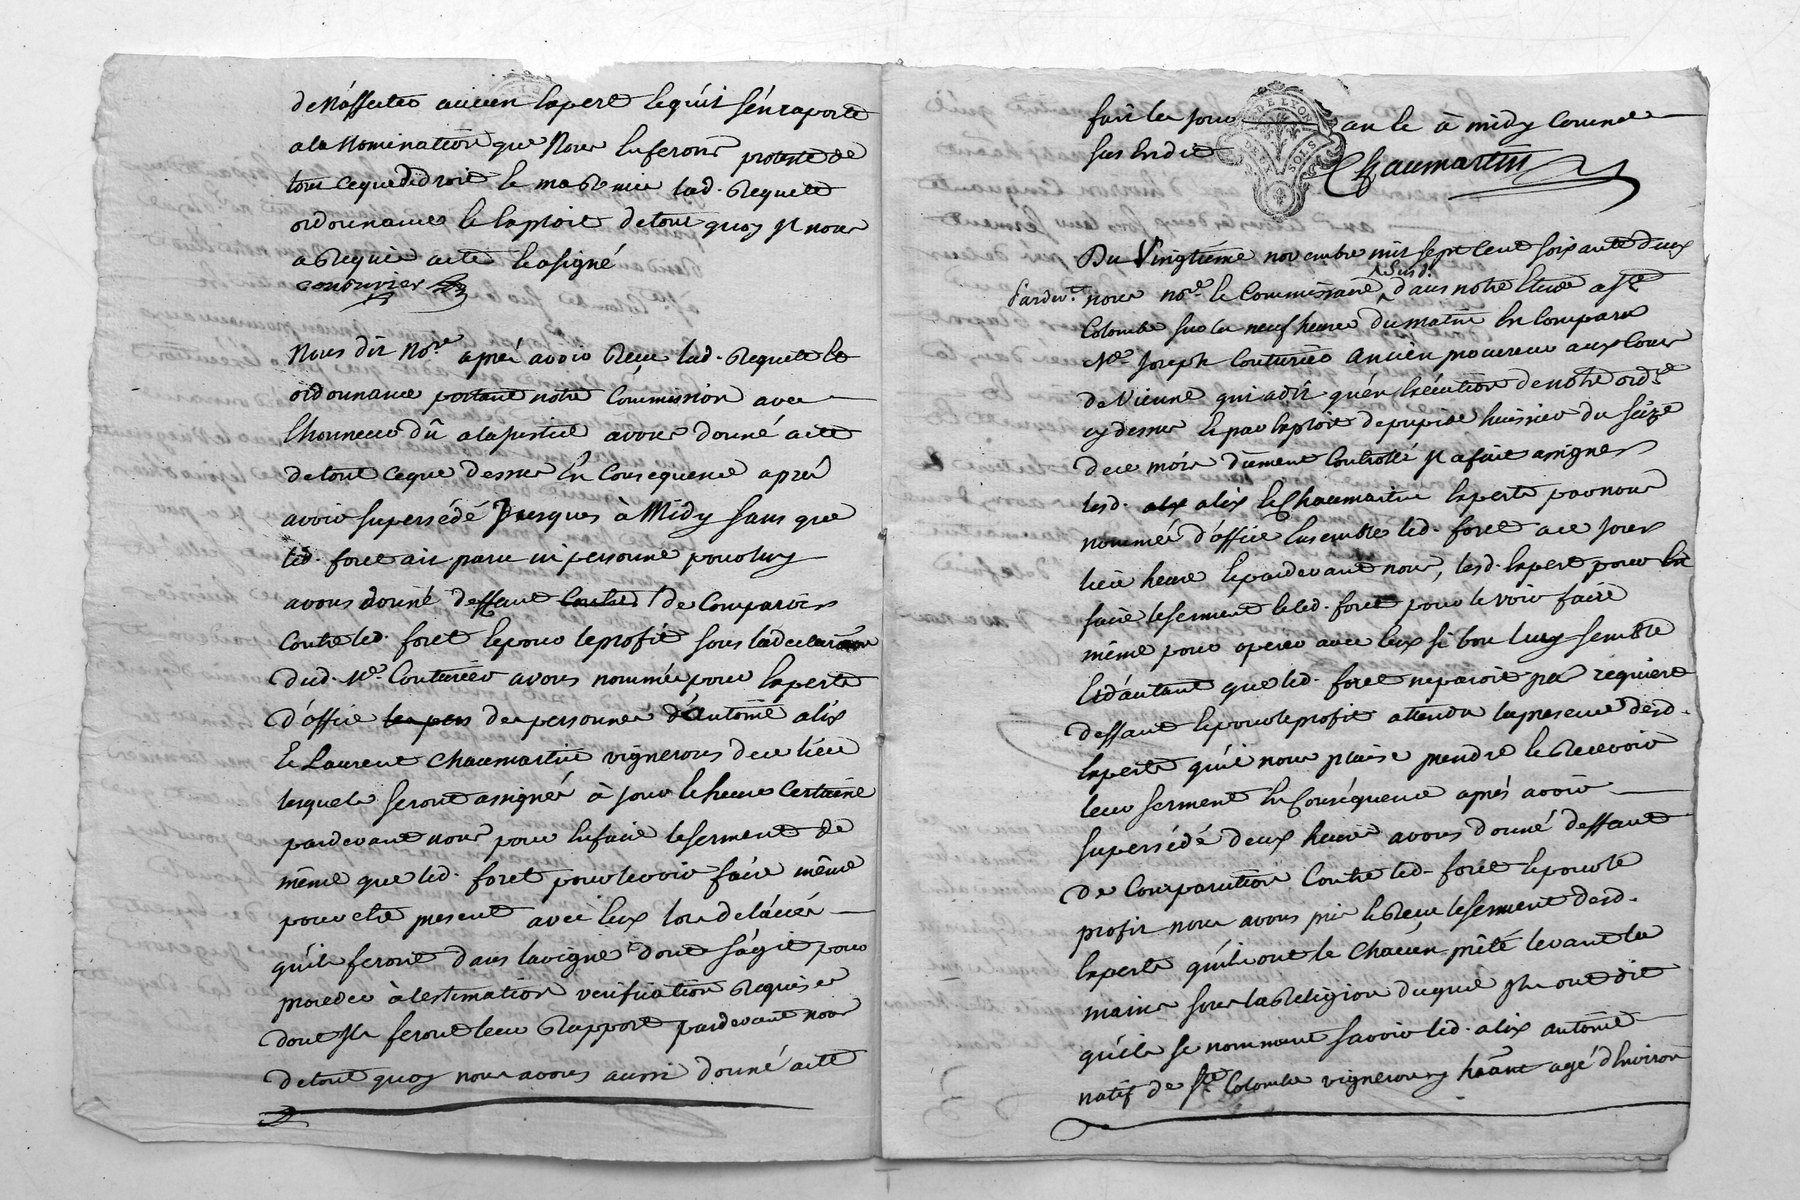 aucun Expert lequel s'en raporte
a la Nomination que Nous En ferons proteste de
tout ce que de droit Et nous Remis lad. Requete
ordonnance Et Exploit de tout quoy Il nous
a Requis acte Et a signé
couturier
Nous dit No.re après avoir Receu lad. Requete Et
ordonnance portant notre Commission avec
l'honneur dû a la justice avons donné acte
de tout ce que dessus En Consequence après
avoir supersédé Jusques à Midy sans que
led. foret ait paru ni personne pour luy
avons donné deffaut Contre de Comparoir
Contre led. foret Et pour le profit sous la declaration
dud. Me. Couturier avons nommé pour Experts
d'office les pers des personnes d'antoine alix
Et Laurent Chaumartin vignerons de ce lieu
lesquels seront assignés à jour Et heure Certaine
pardevant nous pour En faire le serment de
même que led. foret pour le voir faire même
pour etre present avec Eux lors de l'accés
qu'ils feront dans la vigne dont s'agit pour
proceder à l'estimation verification Requises
dont Ils feront leur Rapport pardevant nous
de tout quoy nous avons aussi donné acte
fait les jour an Et à midy Comme
sus Est dit
Chaumartin
DE LYON
SOLS
Du Vingtième novembre mil sept cent soixante deux
susd.
pardev.t nous No.re Et Commissaire dans notre Etude a Ste
Colombe sur les neuf heures du matin En Comparu
Me. Joseph Couturier ancien procureur aux Cours
de Vienne qui a dit qu'en Exécution de notre ord.ce
cy dessus Et par Exploit de huissier du seize
de ce mois düement Controllé Il a fait assigner
lesd. alix alix Et Chaumartin Experts par nous
nommés d'office Ensemble led. foret a ce jour
lieu heure Et pardevant nous, lesd. Expert pour En
faire le serment Et led. foret pour le voir faire
même pour operer avec Eux si bon luy semble
Et d'autant que led. foret ne paroit pas requiert
deffaut Et pour le profit attendu la presence desd.
Experts qu'il nous plaise prendre Et Recevoir
leur serment En Conséquence après avoir
supersédé deux heures avons donné deffaut
de Comparution Contre led. foret Et pour le
profit nous avons pris Et Receu le serment desd.
Experts qu'ils ont Et Chacun prêté levant les
mains sous la Religion duquel Ils ont dit
qu'ils se nomment savoir led. alix antoine
natif de Ste Colombe vigneron y hânt agé d'Environ